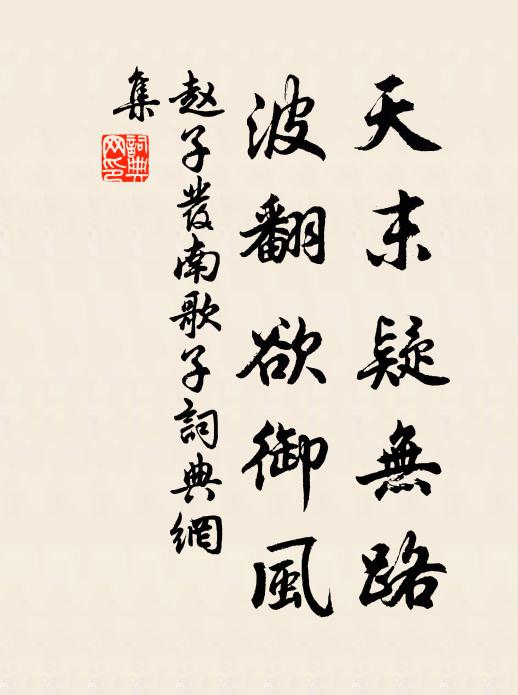 天末疑無路
波翻欲御風
赵子發南歌子詞典網
集
詞典
网印